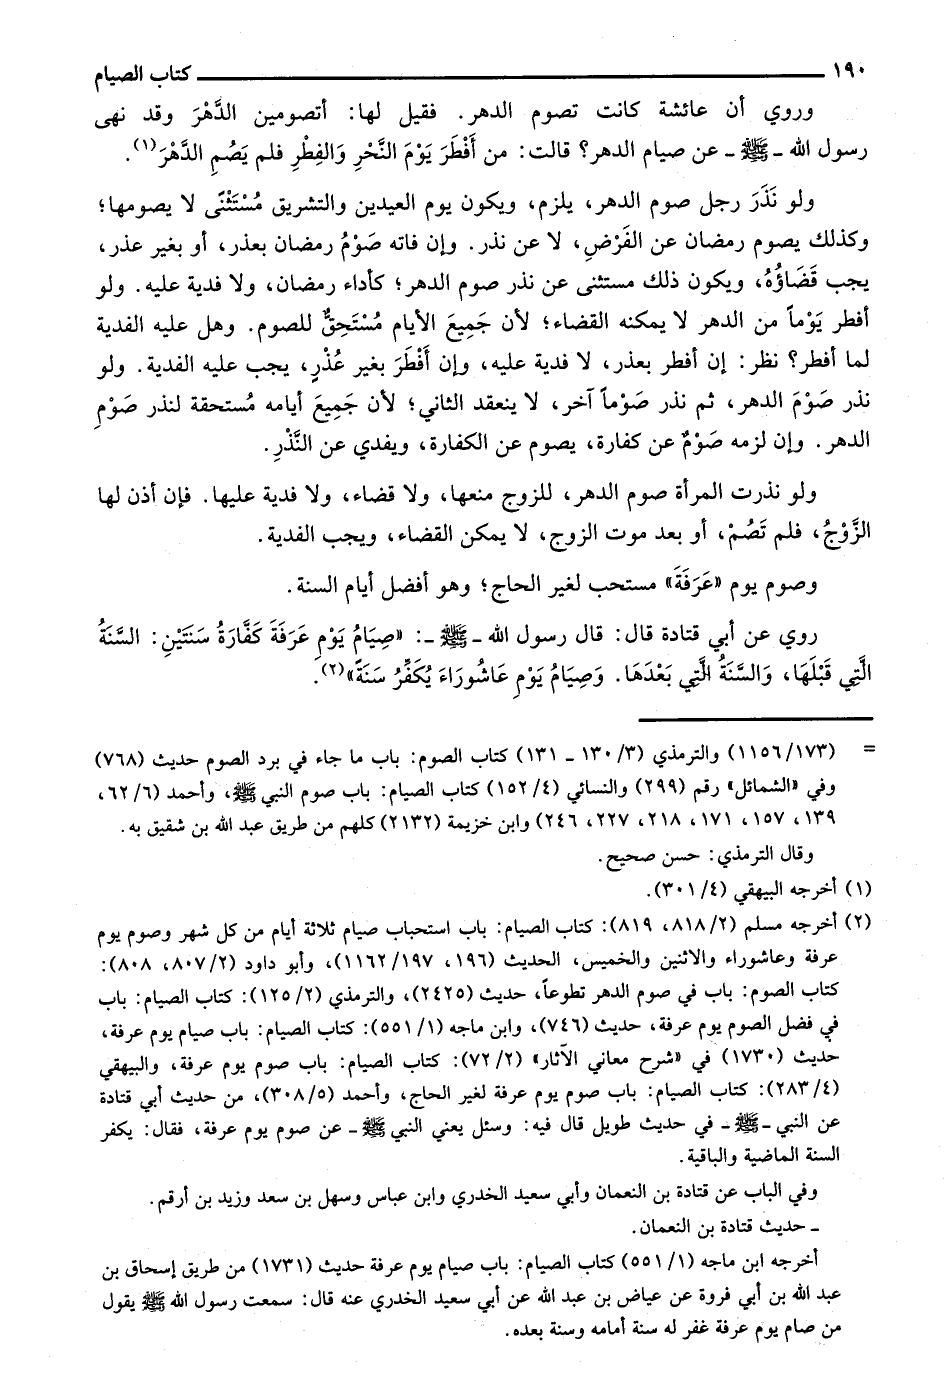 ١٩٠ كتاب الصيام
وروي أن عائشة كانت تصوم الدهر. فقيل لها: أتصومين الدَّهْرَ وقد نهى
رسول الله ـ ﷺ ـ عن صيام الدهر؟ قالت: من أَفْطَرَ يَوْمَ النَّحْرِ وَالفِطْرِ فلم يَصُمِ الدَّهْرَ(١).
ولو نَذَرَ رجل صوم الدهر، يلزم، ويكون يوم العيدين والتشريق مُسْتَثْنًى لا يصومها؛
وكذلك يصوم رمضان عن الفَرْضِ، لا عن نذر. وإن فاته صَوْمُ رمضان بعذر، أو بغير عذر،
يجب قَضَاؤُهُ، ويكون ذلك مستثنى عن نذر صوم الدهر؛ كأداء رمضان، ولا فدية عليه. ولو
أفطر يَوْماً من الدهر لا يمكنه القضاء؛ لأن جَمِيعَ الأيام مُسْتَحِقٌّ للصوم. وهل عليه الفدية
لما أفطر؟ نظر: إن أفطر بعذر، لا فدية عليه، وإن أَفْطَرَ بغير عُذْرٍ، يجب عليه الفدية. ولو
نذر صَوْمَ الدهر، ثم نذر صَوْماً آخر، لا ينعقد الثاني؛ لأن جَمِيعَ أيامه مُستحقة لنذر صَوْمِ
الدهر. وإن لزمه صَوْمٌ عن كفارة، يصوم عن الكفارة، ويفدي عن النَّذْرِ.
ولو نذرت المرأة صوم الدهر، للزوج منعها، ولا قضاء، ولا فدية عليها. فإن أذن لها
الزَّوْجُ، فلم تَصُمْ، أو بعد موت الزوج، لا يمكن القضاء، ويجب الفدية.
وصوم يوم «عَرَفَةَ» مستحب لغير الحاج؛ وهو أفضل أيام السنة.
روي عن أبي قتادة قال: قال رسول الله ـ ﷺ ـ: «صِيَامُ يَوْمِ عَرَفَةَ كَفَّارَةُ سَنَتَيْنِ: السَّنَةُ
الَّتِي قَبْلَهَا، وَالسَّنَةُ الَّتِي بَعْدَهَا. وَصِيَامُ يَوْمِ عَاشُورَاءَ يُكَفِّرُ سَنَةً»(٢).
= (١١٥٦/١٧٣) والترمذي (٣/ ١٣٠ ـ ١٣١) كتاب الصوم: باب ما جاء في برد الصوم حديث (٧٦٨)
وفي «الشمائل» رقم (٢٩٩) والنسائي (٤/ ١٥٢) كتاب الصيام: باب صوم النبي ﷺ، وأحمد (٦/ ٦٢،
١٣٩، ١٥٧، ١٧١، ٢١٨، ٢٢٧، ٢٤٦) وابن خزيمة (٢١٣٢) كلهم من طريق عبد الله بن شقيق به.
وقال الترمذي: حسن صحيح.
(١) أخرجه البيهقي (٤/ ٣٠١).
(٢) أخرجه مسلم (٢/ ٨١٨، ٨١٩): كتاب الصيام: باب استحباب صيام ثلاثة أيام من كل شهر وصوم يوم
عرفة وعاشوراء والاثنين والخميس، الحديث (١٩٦، ١٩٧/ ١١٦٢)، وأبو داود (٢/ ٨٠٧، ٨٠٨):
كتاب الصوم: باب في صوم الدهر تطوعاً، حديث (٢٤٢٥)، والترمذي (٢/ ١٢٥): كتاب الصيام: باب
في فضل الصوم يوم عرفة، حديث (٧٤٦)، وابن ماجه (١/ ٥٥١): كتاب الصيام: باب صيام يوم عرفة،
حديث (١٧٣٠) في «شرح معاني الآثار» (٢/ ٧٢): كتاب الصيام: باب صوم يوم عرفة، والبيهقي
(٤/ ٢٨٣): كتاب الصيام: باب صوم يوم عرفة لغير الحاج، وأحمد (٥/ ٣٠٨)، من حديث أبي قتادة
عن النبي ـ ﷺ ـ في حديث طويل قال فيه: وسئل يعني النبي ﷺ ـ عن صوم يوم عرفة، فقال: يكفر
السنة الماضية والباقية.
وفي الباب عن قتادة بن النعمان وأبي سعيد الخدري وابن عباس وسهل بن سعد وزيد بن أرقم.
ـ حديث قتادة بن النعمان.
أخرجه ابن ماجه (١/ ٥٥١) كتاب الصيام: باب صيام يوم عرفة حديث (١٧٣١) من طريق إسحاق بن
عبد الله بن أبي فروة عن عياض بن عبد الله عن أبي سعيد الخدري عنه قال: سمعت رسول الله ﷺ يقول
من صام يوم عرفة غفر له سنة أمامه وسنة بعده.